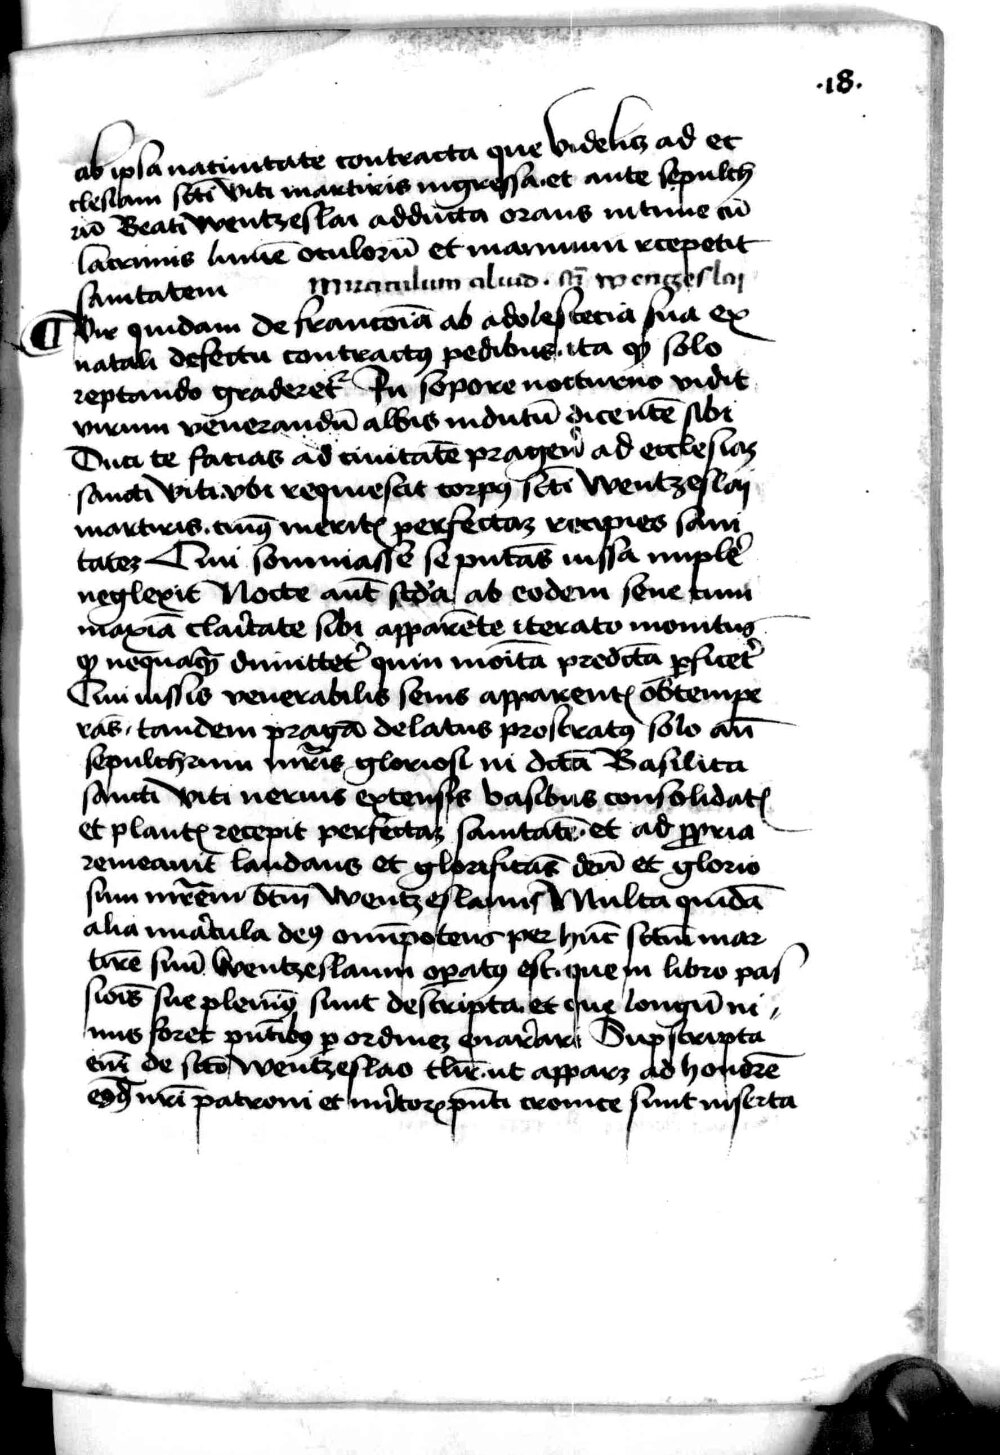 .18.
ab ipsa natiuitate contracta que videlicz ad ec
clesiam scti viti martiris ingressa. et ante sepulch
rū Beati Wentzeslai adducta orans intime cū
lacrimis lumē oculorū et manuum recepetit
sanitatem
Miraculum aliud. sti wentzeslai
¶ Vir quidam de francōia ab adolescēcia sua ex
natali defectu contractꝯ pedibus. ita qꝫ solo
reptando graderet᷑ In sopore nocturno vidit
virum venerandū albis indutū dicentē sibi
Duci te facias ad ciuitatē pragen̄ ad ecclesiaꝫ
sancti viti. vbi requiescit corpꝯ scti Wentzeslai
martiris. cuiꝯ meritꝭ perfectaꝫ recipies sani
tateꝫ Qui somniasse se putās iussa implē
neglexit Nocte aūt scd̄a ab eodem sene cum
maxīa clāritate sibi apparēte iterato monitus
qꝫ nequaqꝫ dimittet᷑ quin mōita predcta ꝑficet᷑
Qui iussis venerabilis senis apparentꝭ obtempe
rās. tandem pragā delatus prostratꝯ solo an̄
sepulchrum mr̄is gloriosi in dctā Basilica
sancti viti neruis extensis basibus consolidatꝭ
et plantꝭ recepit perfectaꝫ sanitatē. et ad ꝓpria
remeauit laudans et glorificās deū et glorio
sum mr̄em btm̄ Wentzeslaum Multa quidā
alia mirācula deꝯ omīpotens per hūc sctum mar
tirē suū Wentzeslaum opatꝯ est. que in libro pas
siōis sue pleniꝯ sunt descripta. et que longū ni
mis foret pn̄tibꝯ ꝑ ordineꝫ enarrari Supscripta
em̄ de scto Wentzeslao tlr̄. ut apparꝫ ad honorē
eiꝯdē nr̄i patroni et mr̄toꝝ pn̄ti cronice sunt inserta